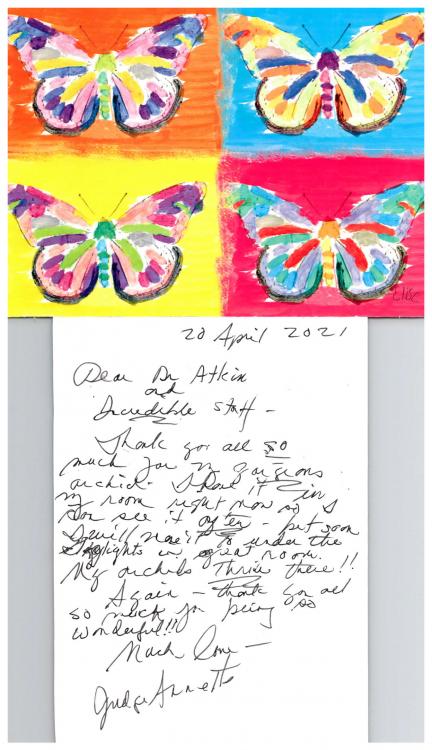 Elise
20 April 2021
Dear Dr Atkin
and
Incredible Staff -
Thank you all so
much for my gorgeous
orchid. I have it in
my room right now so I
can see it often - but soon
I will move it to under the
skylights in great room.
My orchids Thrive there!!
Again - thank you all
so much for being so
wonderful!!
Much love -
Judge Annette